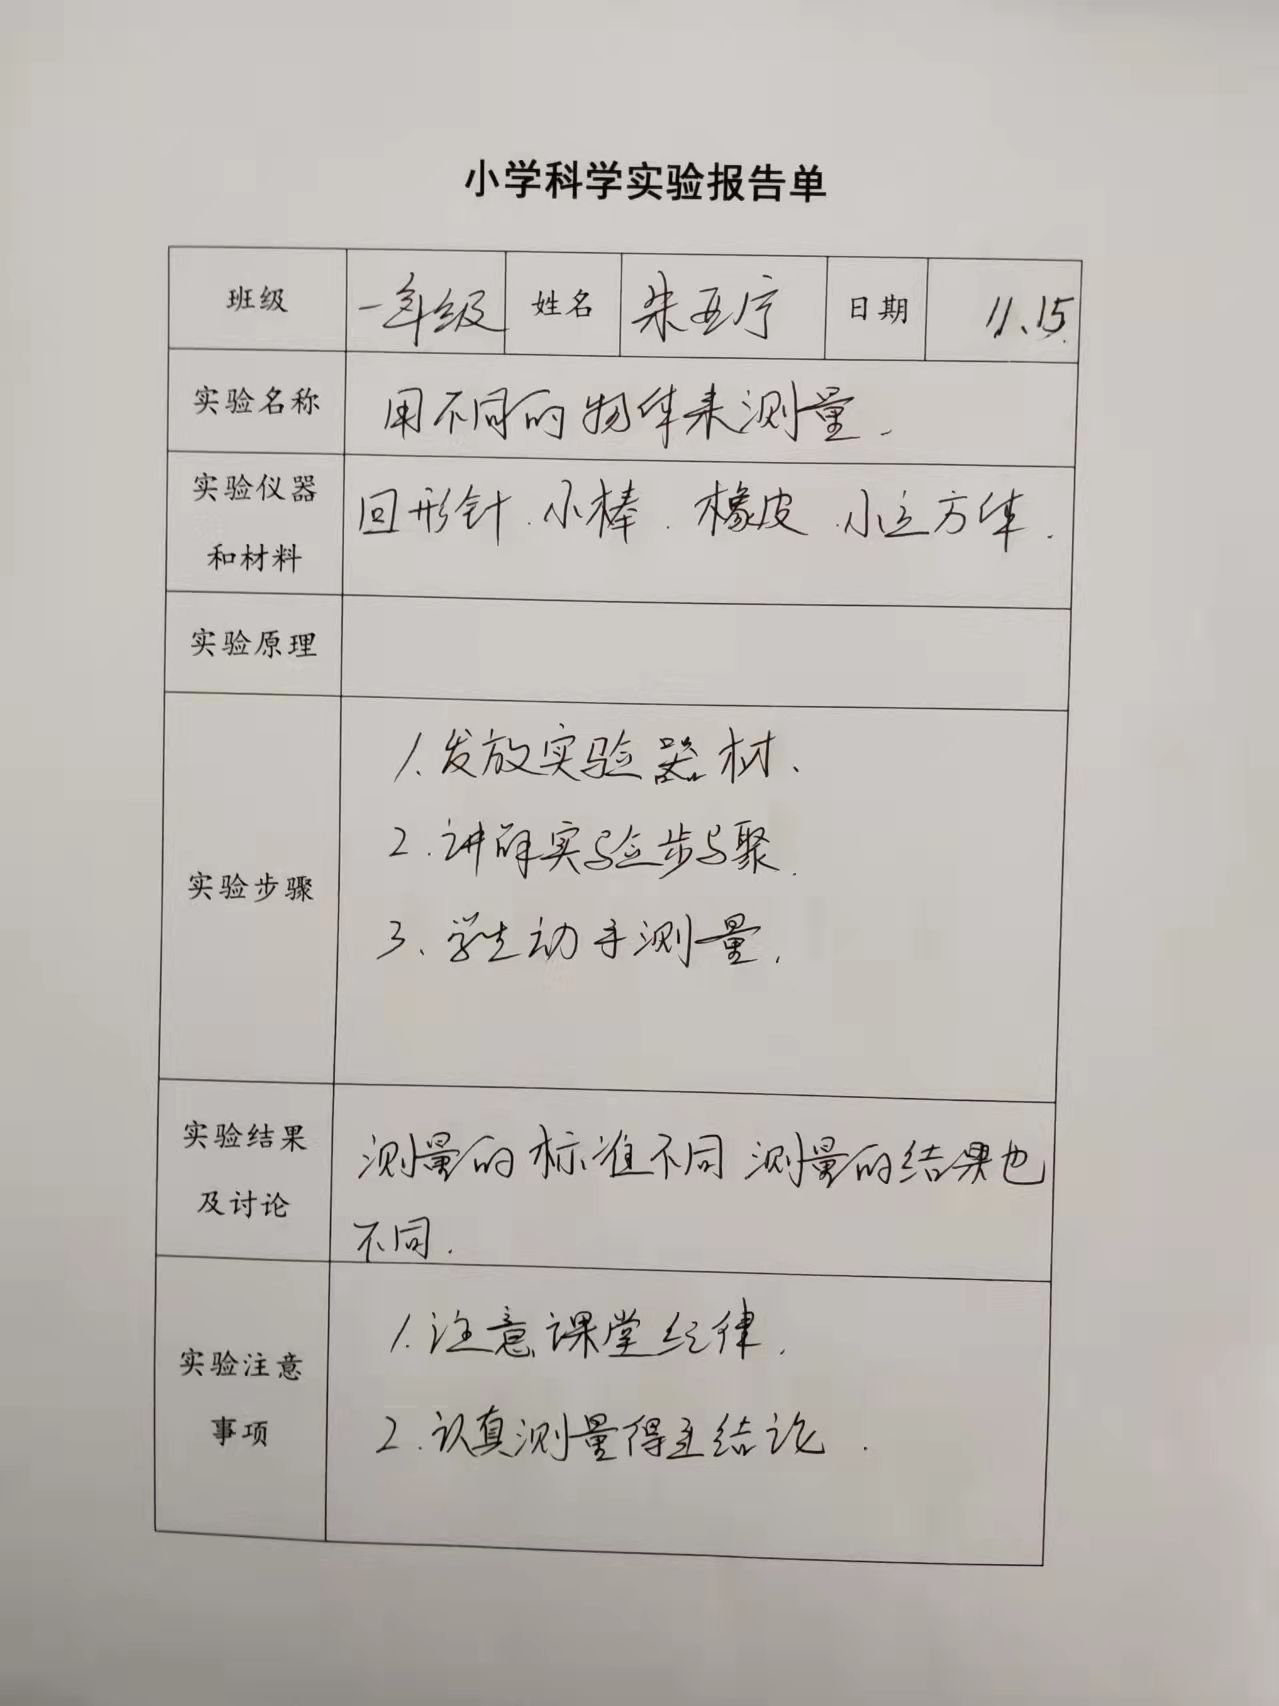 小学科学实验报告单
班级 一年级 姓名 朱亚序 日期 11.15.
实验名称 用不同的物体来测量.
实验仪器
和材料
回形针.小棒.橡皮.小立方体.
实验原理
实验步骤
1.发放实验器材、
2.讲解实验步骤.
3、学生动手测量.
实验结果
及讨论
测量的标准不同 测量的结果也
不同.
实验注意
事项
1.注意课堂纪律.
2.认真测量得出结论.